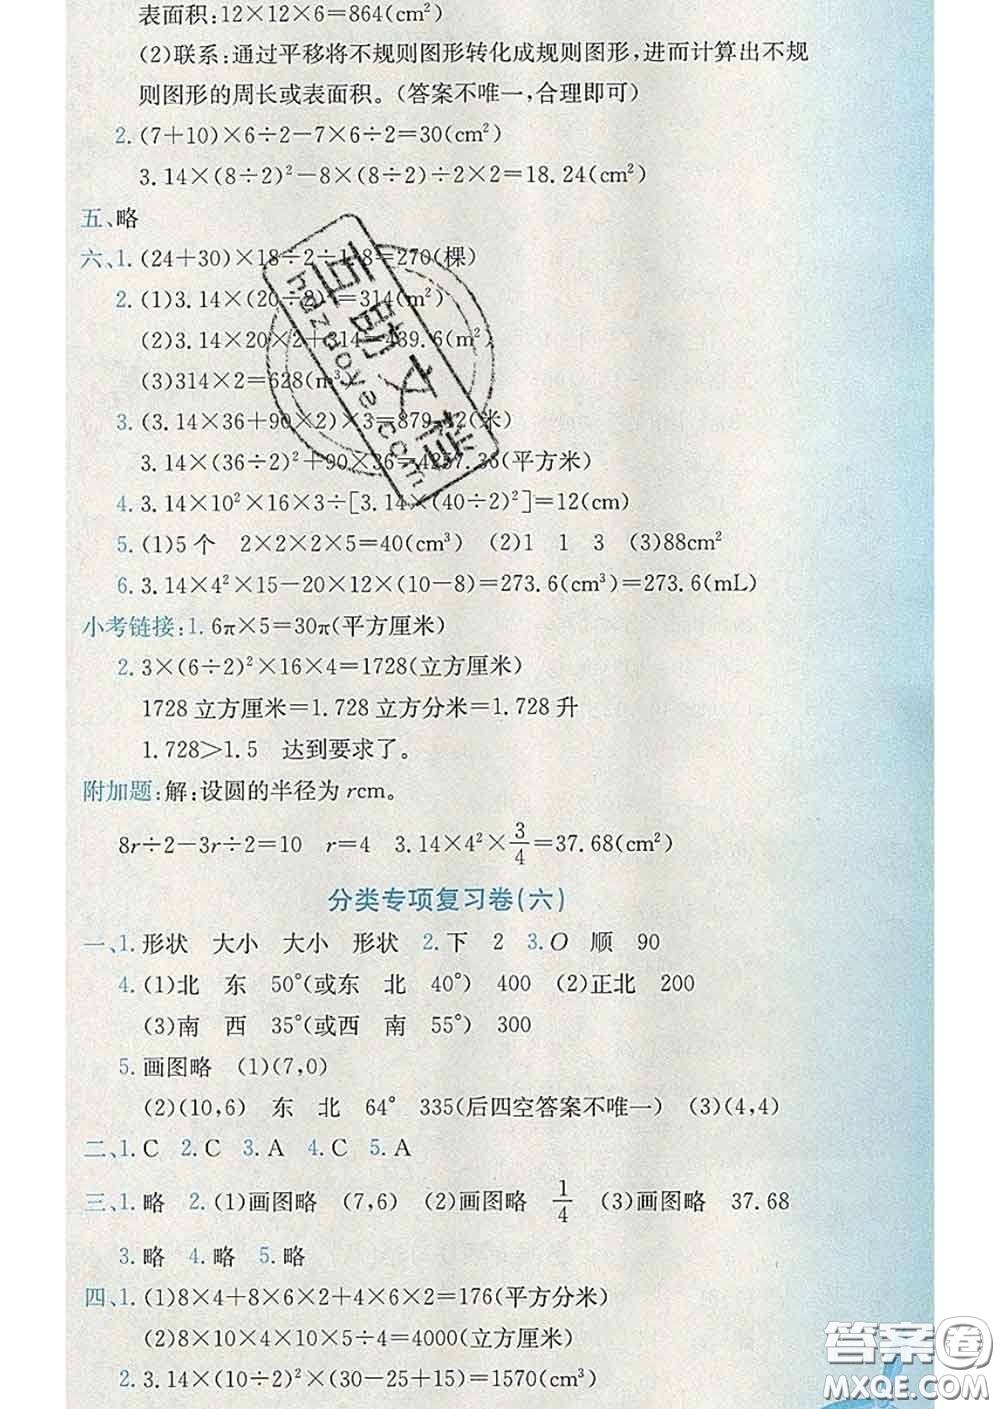 表面积:12×12×6=864(cm²)
(2)联系:通过平移将不规则图形转化成规则图形,进而计算出不规
则图形的周长或表面积。(答案不唯一,合理即可)
2.(7+10)×6÷2-7×6÷2=30(cm²)
3.14×(8÷2)²-8×(8÷2)÷2×2=18.24(cm²)
五、略
六、1.(24+30)×18÷2÷1.8=270(棵)
2.(1)3.14×(20÷2)²=314(m²)
(2)3.14×20×2+314=439.6(m²)
(3)314×2=628(m³)
3.(3.14×36+90×2)×3=879.12(米)
3.14×(36÷2)²+90×36=4257.36(平方米)
4.3.14×10²×16×3÷[3.14×(40÷2)²]=12(cm)
5.(1)5个 2×2×2×5=40(cm³) (2)1 1 3 (3)88cm²
6.3.14×4²×15-20×12×(10-8)=273.6(cm³)=273.6(mL)
小考链接:1.6π×5=30π(平方厘米)
2.3×(6÷2)²×16×4=1728(立方厘米)
1728立方厘米=1.728立方分米=1.728升
1.728>1.5 达到要求了。
附加题:解:设圆的半径为rcm。
8r÷2-3r÷2=10 r=4 3.14×4²×3/4=37.68(cm²)
分类专项复习卷(六)
一、1.形状 大小 大小 形状 2.下 2 3.O 顺 90
4.(1)北 东 50°(或东 北 40°) 400 (2)正北 200
(3)南 西 35°(或西 南 55°) 300
5.画图略 (1)(7,0)
(2)(10,6) 东 北 64° 335(后四空答案不唯一) (3)(4,4)
二、1.C 2.C 3.A 4.C 5.A
三、1.略 2.(1)画图略 (7,6) (2)画图略 1/4 (3)画图略 37.68
3.略 4.略 5.略
四、1.(1)8×4+8×6×2+4×6×2=176(平方分米)
(2)8×10×4×10×5÷4=4000(立方厘米)
2.3.14×(10÷2)²×(30-25+15)=1570(cm³)
互助文档
hdzuoye.com
答案圈
MXQE.COM